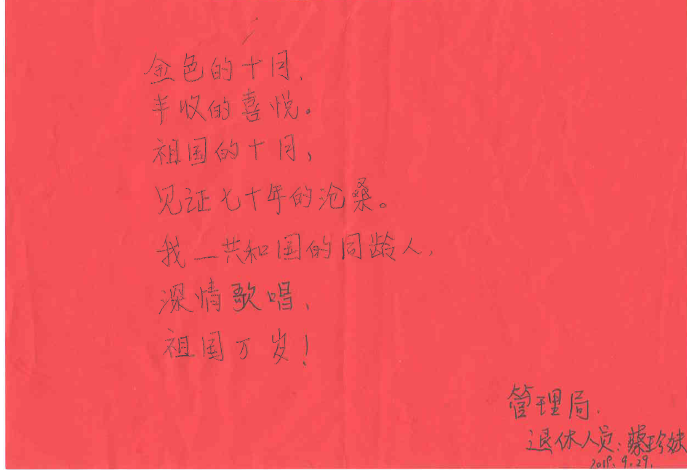 金色的十月,
丰收的喜悦。
祖国的十月,
见证七十年的沧桑。
我一共和国的同龄人,
深情歌唱,
祖国万岁!
管理局.
退休人员:蔡玲妹
2019.9.29.